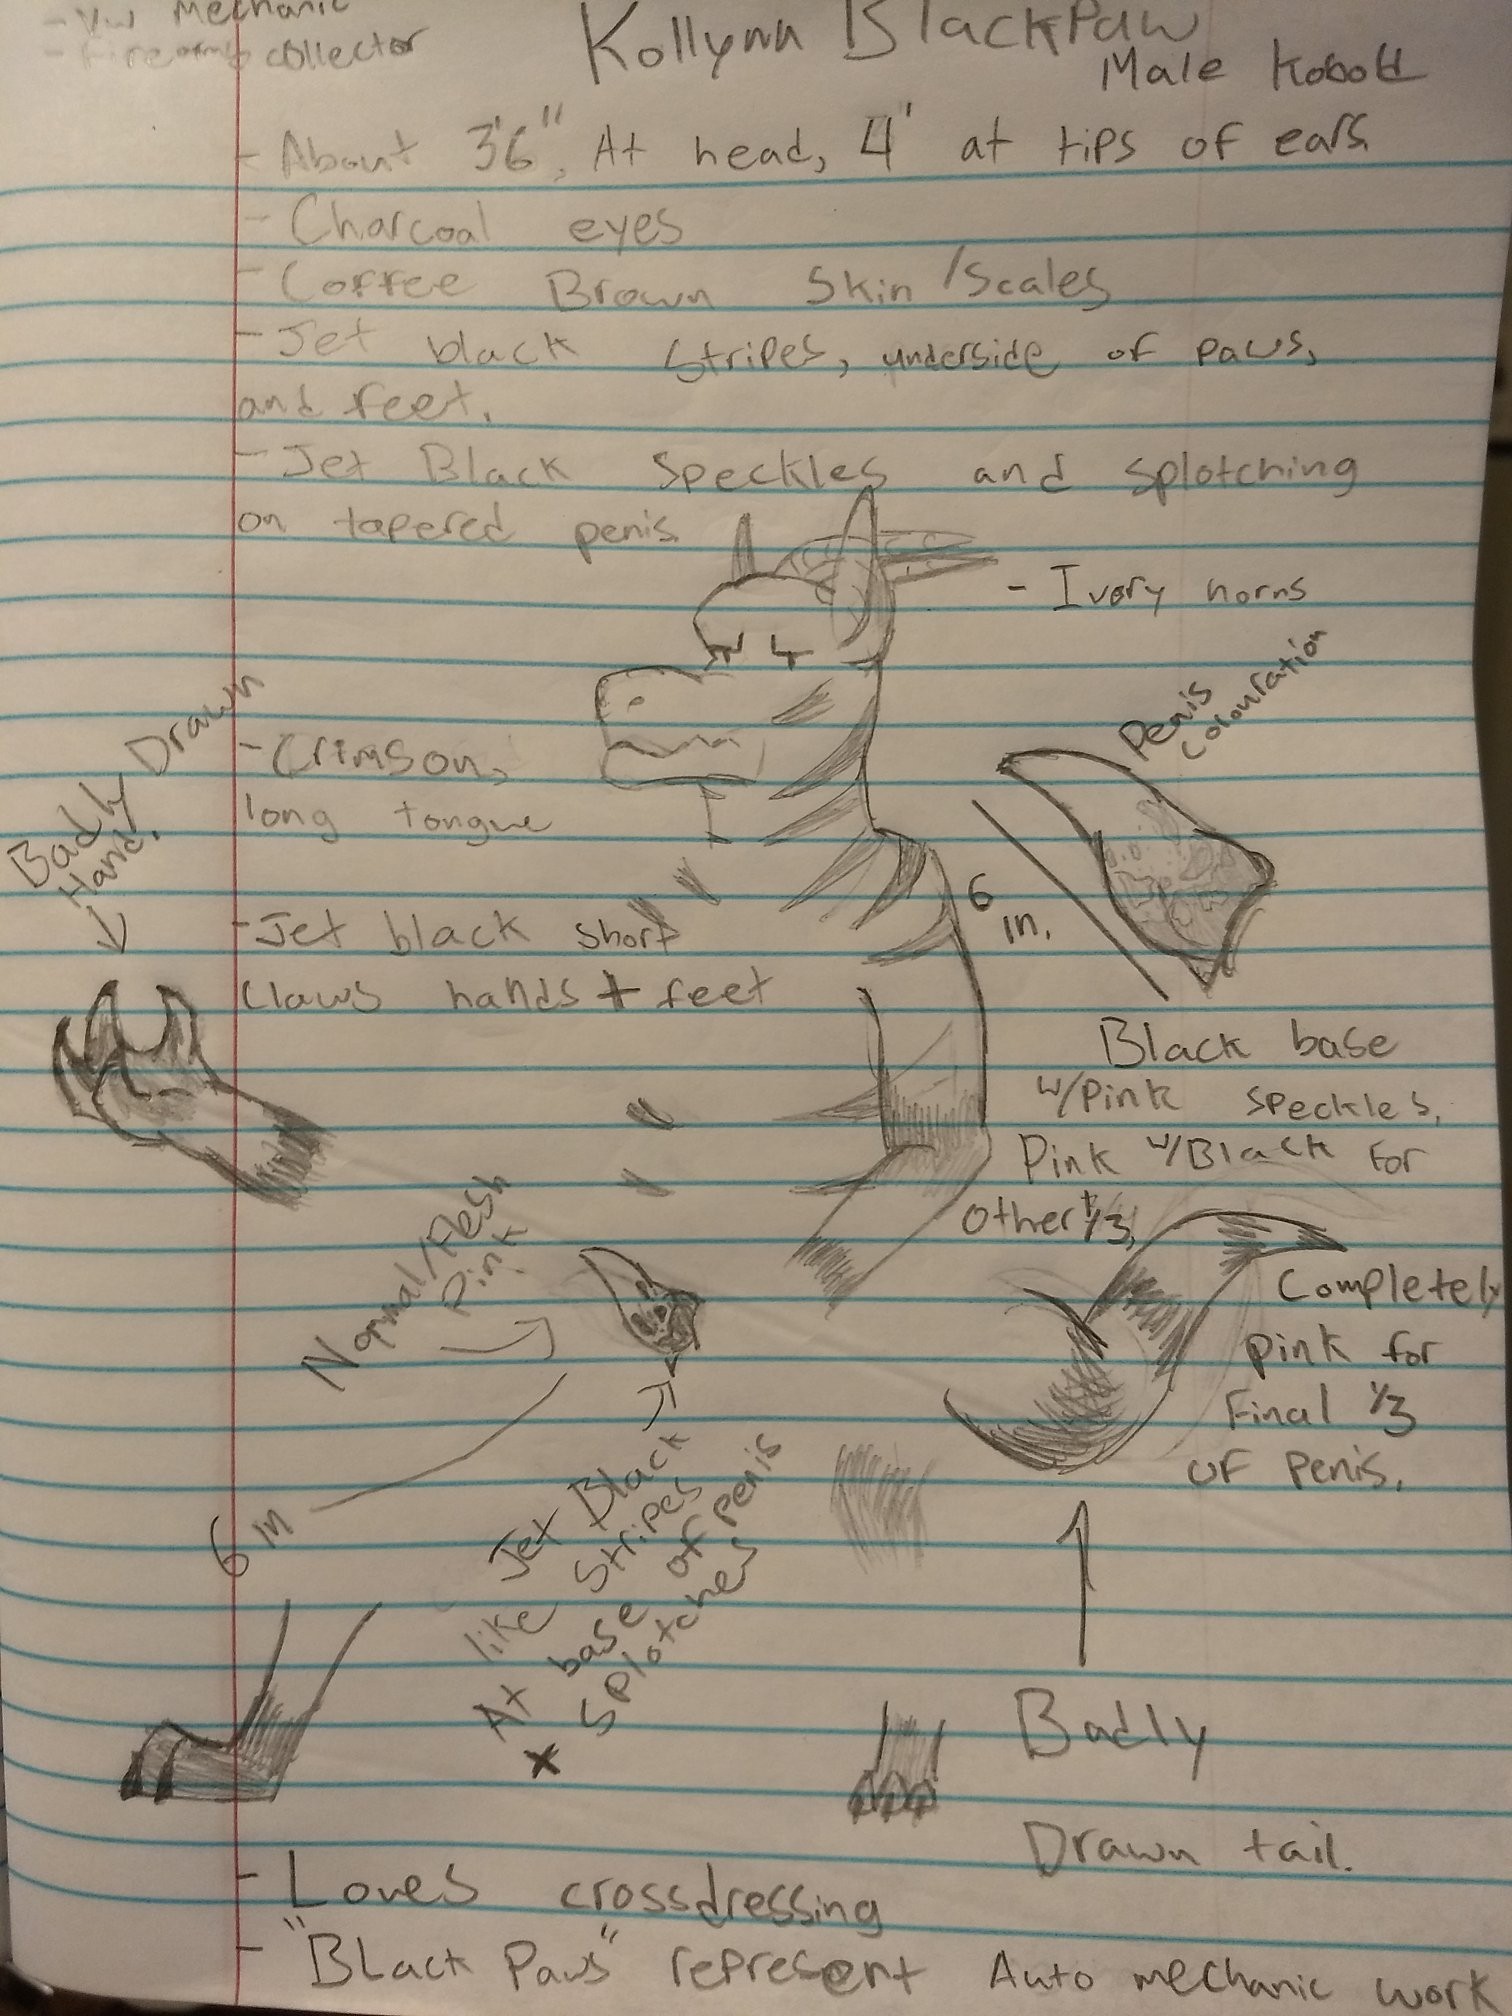 - VW Mechanic
- Firearms collector
Kollynn BlackPaw
Male Kobold
- About 3'6", At head, 4' at tips of ears
- Charcoal eyes
- Coffee Brown Skin/Scales
- Jet black Stripes, underside of paws,
and feet.
- Jet Black Speckles and splotching
on tapered penis
- Ivory horns
Penis
Colouration
Badly Drawn
Hand.
- Crimson,
long tongue
6
in.
- Jet black short
claws hands + feet
Black base
w/Pink speckles,
Pink w/Black for
other 1/3,
Completely
pink for
Final 1/3
of penis.
Normal/Flesh
Pink
6 in
Jet Black
like stripes
At base of penis
x splotches
Badly
Drawn tail.
- Loves crossdressing
- "Black Paws" represent Auto mechanic work